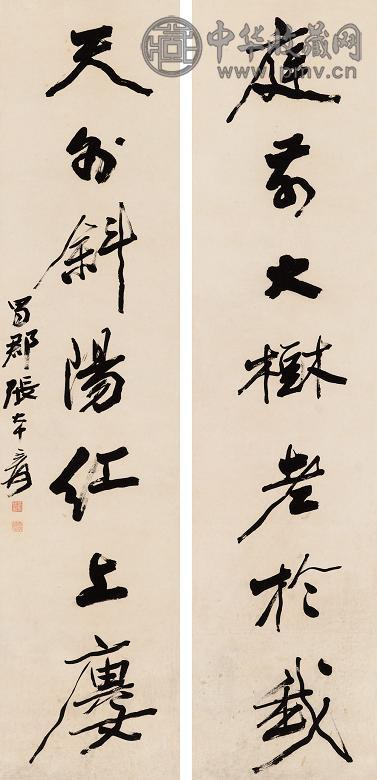 中华收藏网
www.pmv.cn
庭前大樹老於我
天外斜陽紅上廔
蜀郡張大千爰